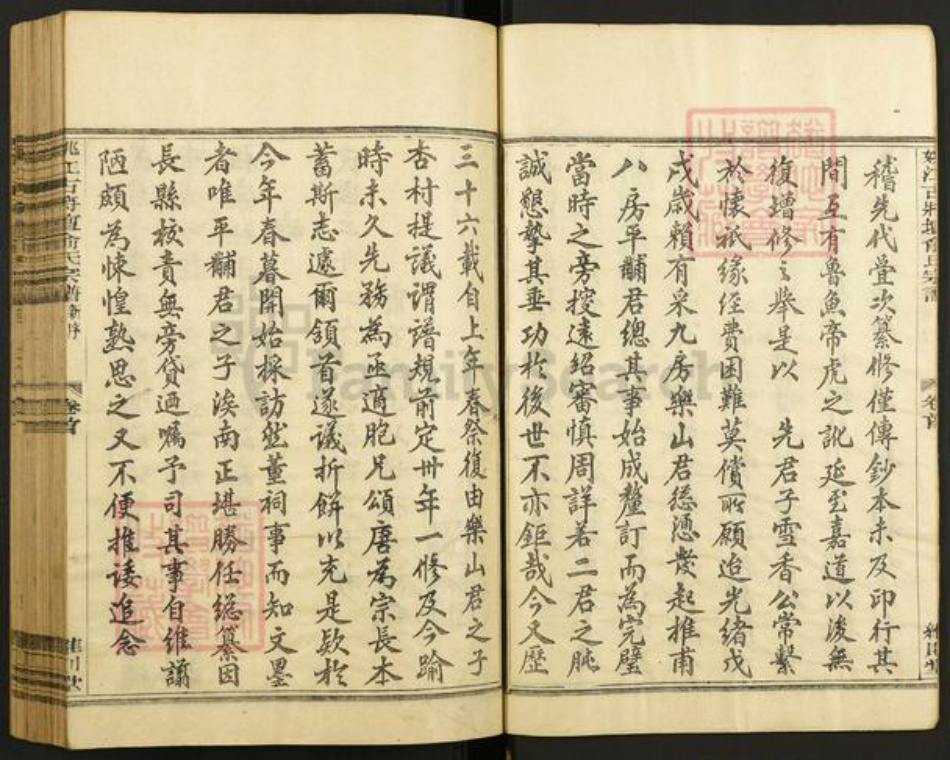 稽先代疊次纂修僅傳鈔本未及印行其
間互有魯魚帝虎之訛延至嘉道以後無
復增修之舉是以　先君子雪香公常繫
於懷祇緣經費困難莫償所願迨光緒戊
戌歲賴有采九房樂山君慫慂發起推甫
八房平黼君總其事始成釐訂而為完璧
當時之旁搜遠紹審慎周詳若二君之肫
誠懇摯其垂功於後世不亦鉅哉今又歷
三十六載自上年春祭復由樂山君之子
杏村提議謂譜規前定卅年一修及今踰
時未久先務為亟適胞兄頌唐為宗長本
蓄斯志遽爾領首遂議折餅以充是欵於
今年春暮開始採訪然董祠事而知文墨
者唯平黼君之子渼南正堪勝任總纂因
長縣校責無旁貸迺囑予司其事自維謭
陋頗為悚惶熟思之又不便推諉追念
卷首
卷首
FamilySearch